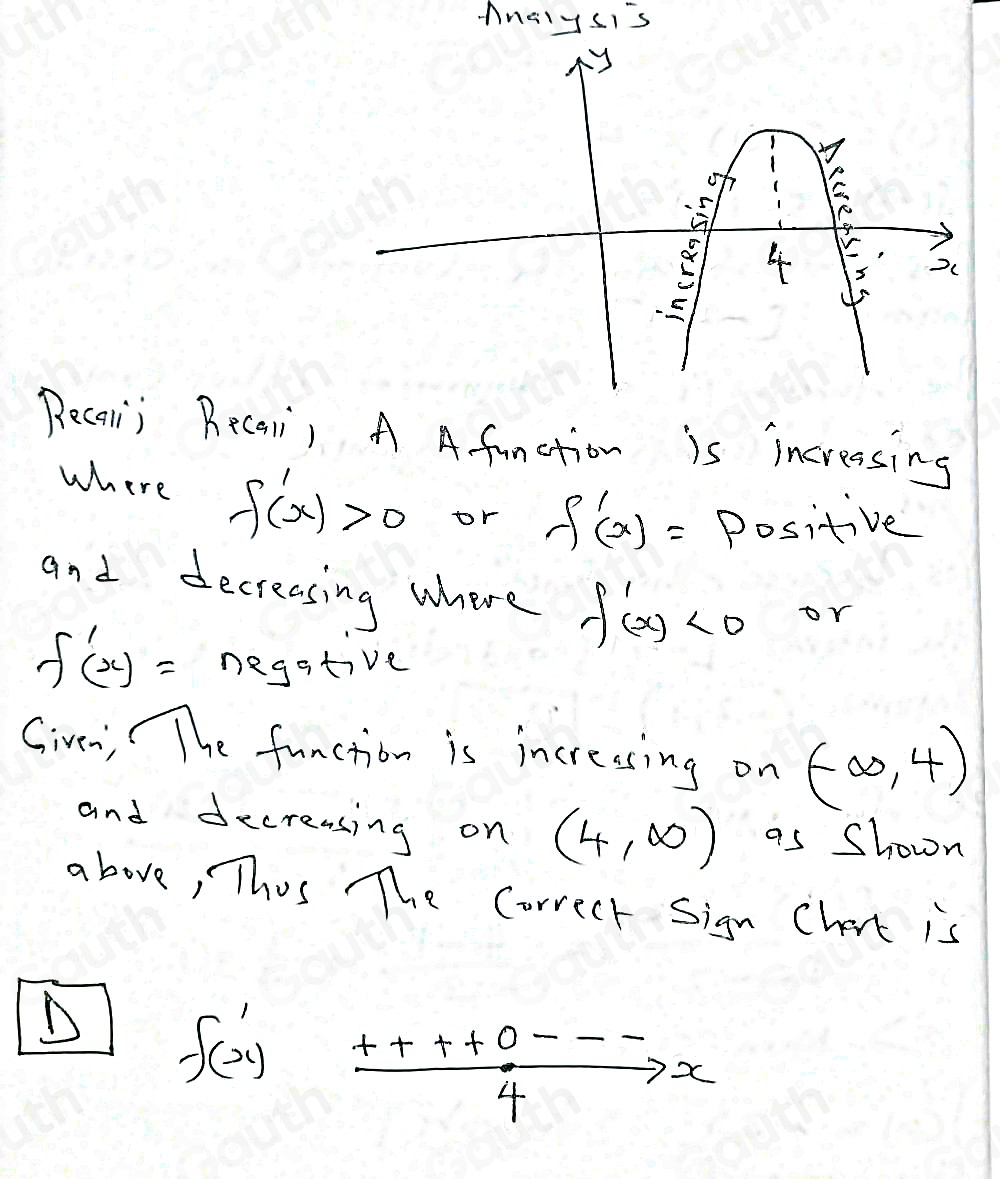 Analysis
y
increasing
Decreasing
4
x
Recall; Recall, A A function is increasing
where f'(x) > 0 or f'(x) = Positive
and decreasing where f'(x) < 0 or
f'(x) = negative
Given; The function is increasing on (-∞, 4)
and decreasing on (4, ∞) as shown
above, Thus The Correct Sign Chart is
D
f'(x) + + + + 0 - - -
x
4